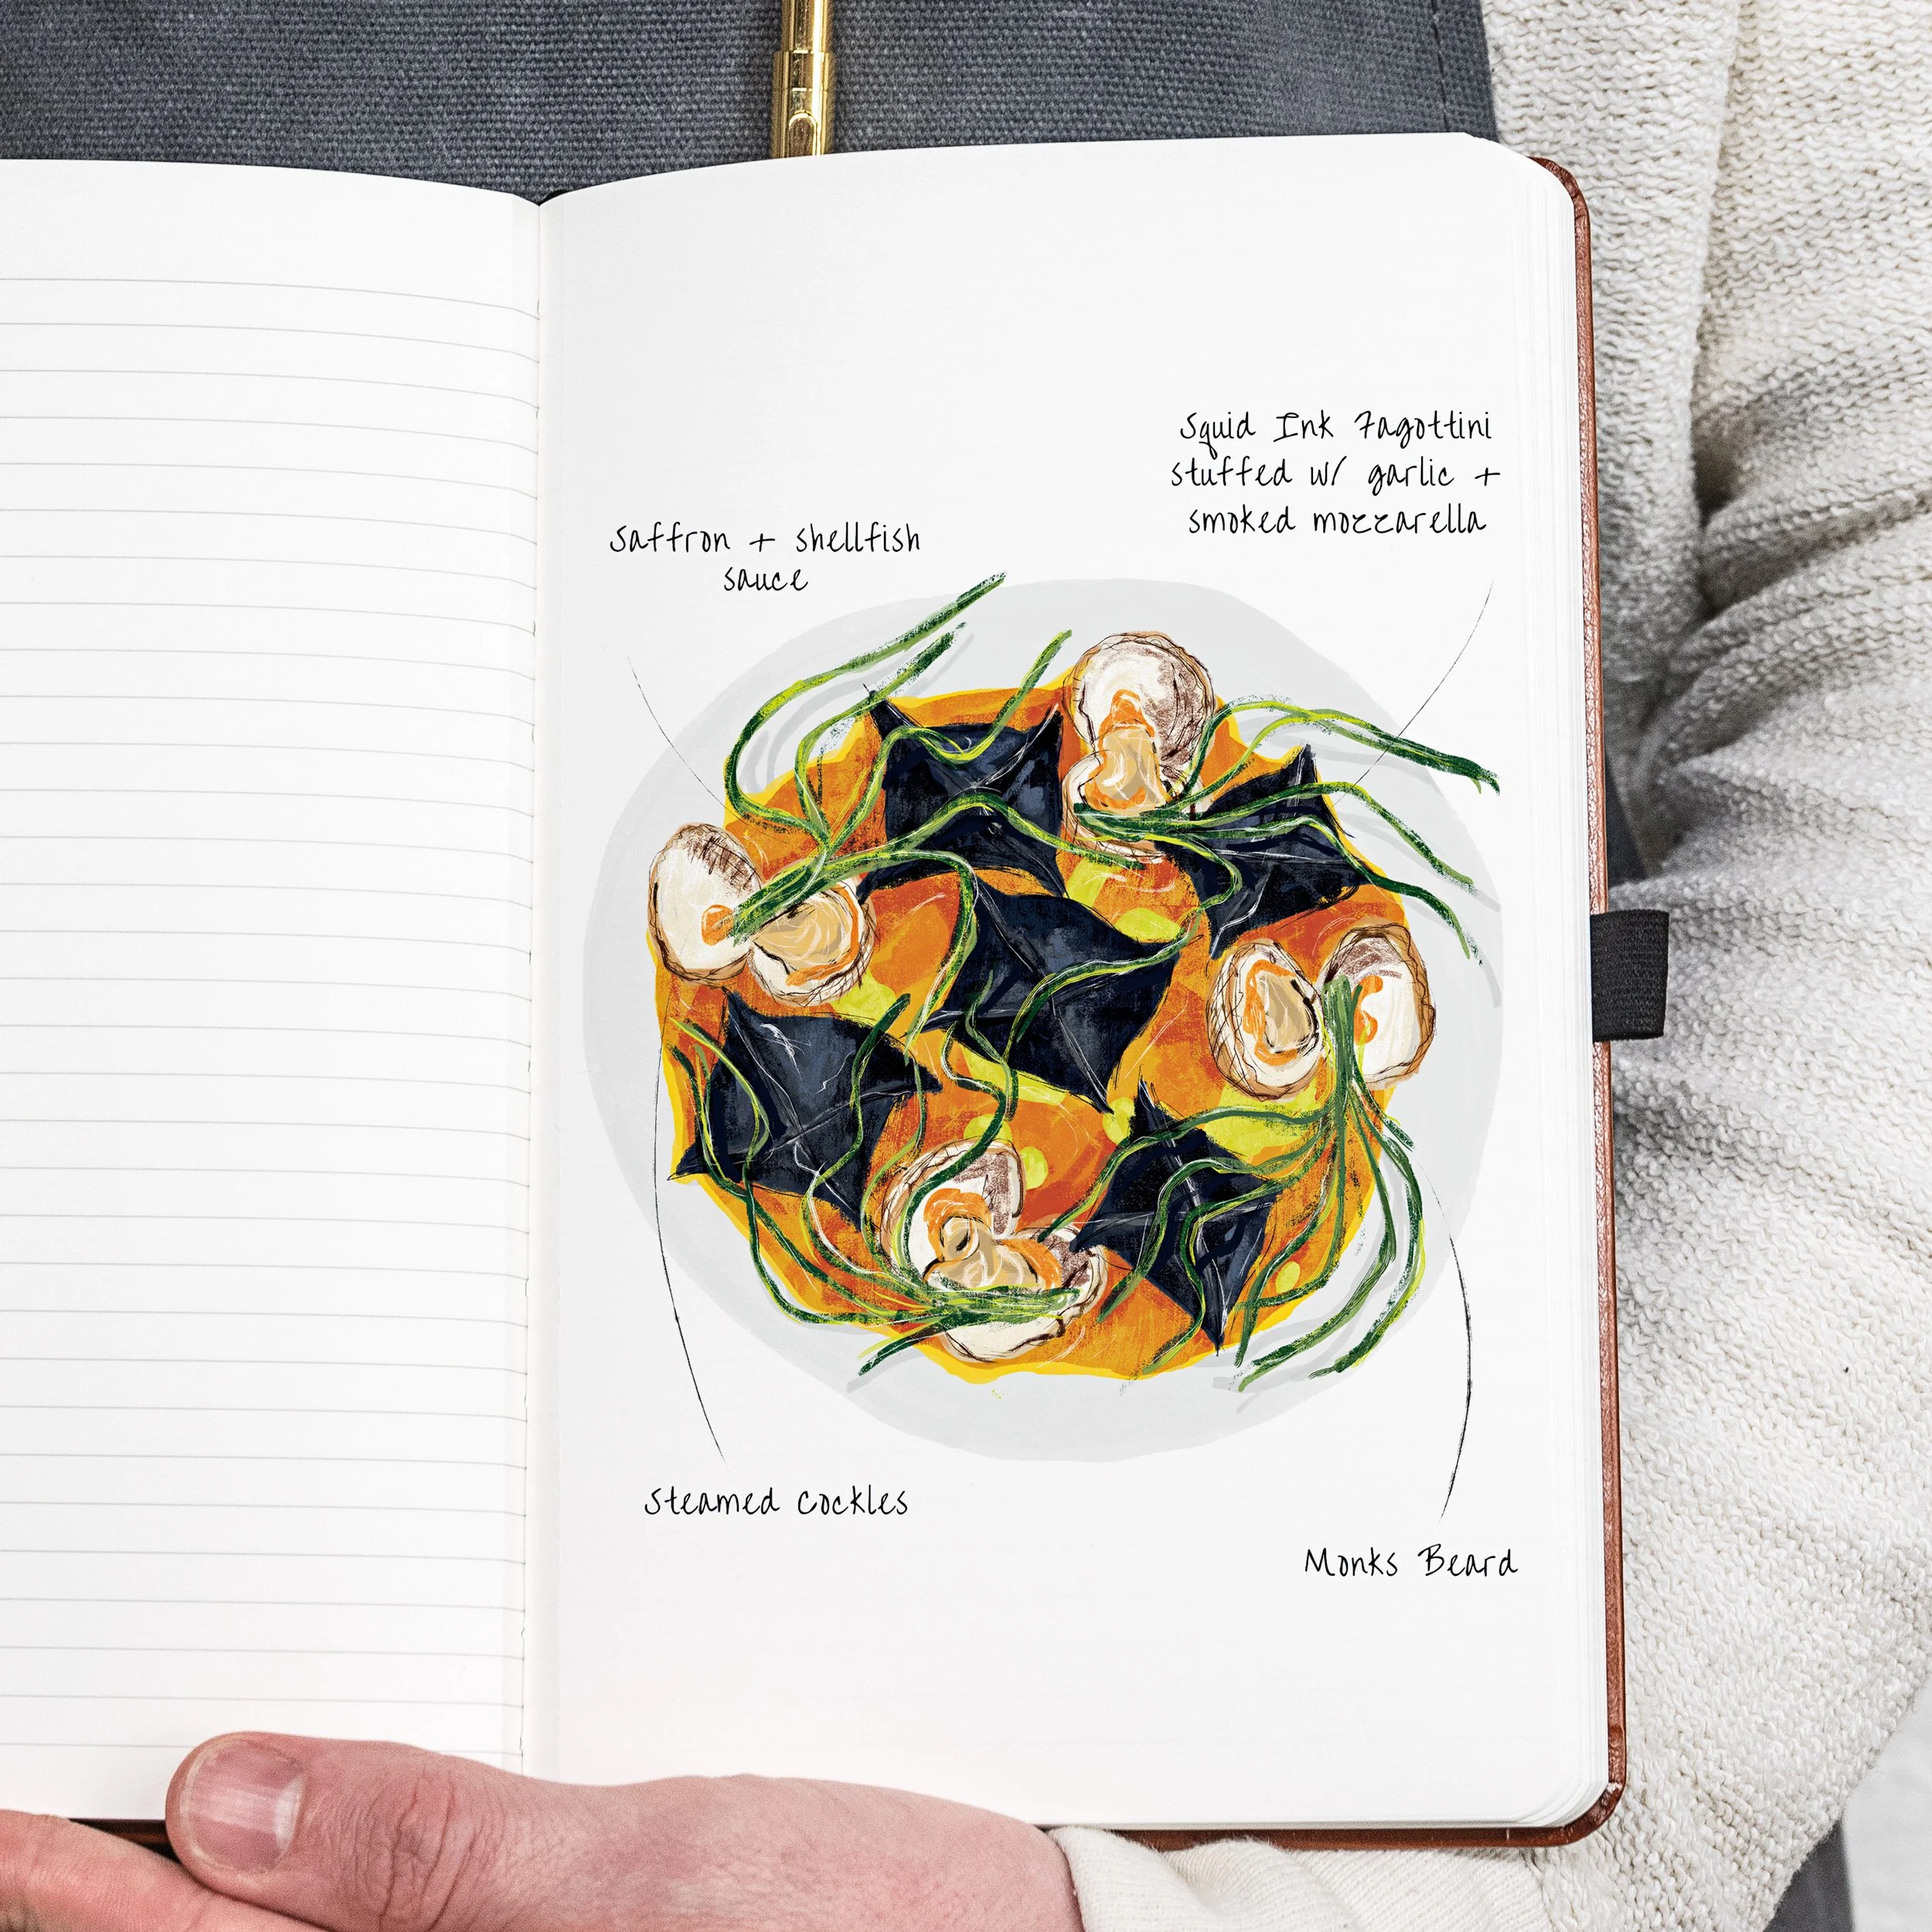 Squid Ink Fagottini
stuffed w/ garlic +
smoked mozzarella
saffron + shellfish
sauce
Steamed Cockles
Monks Beard